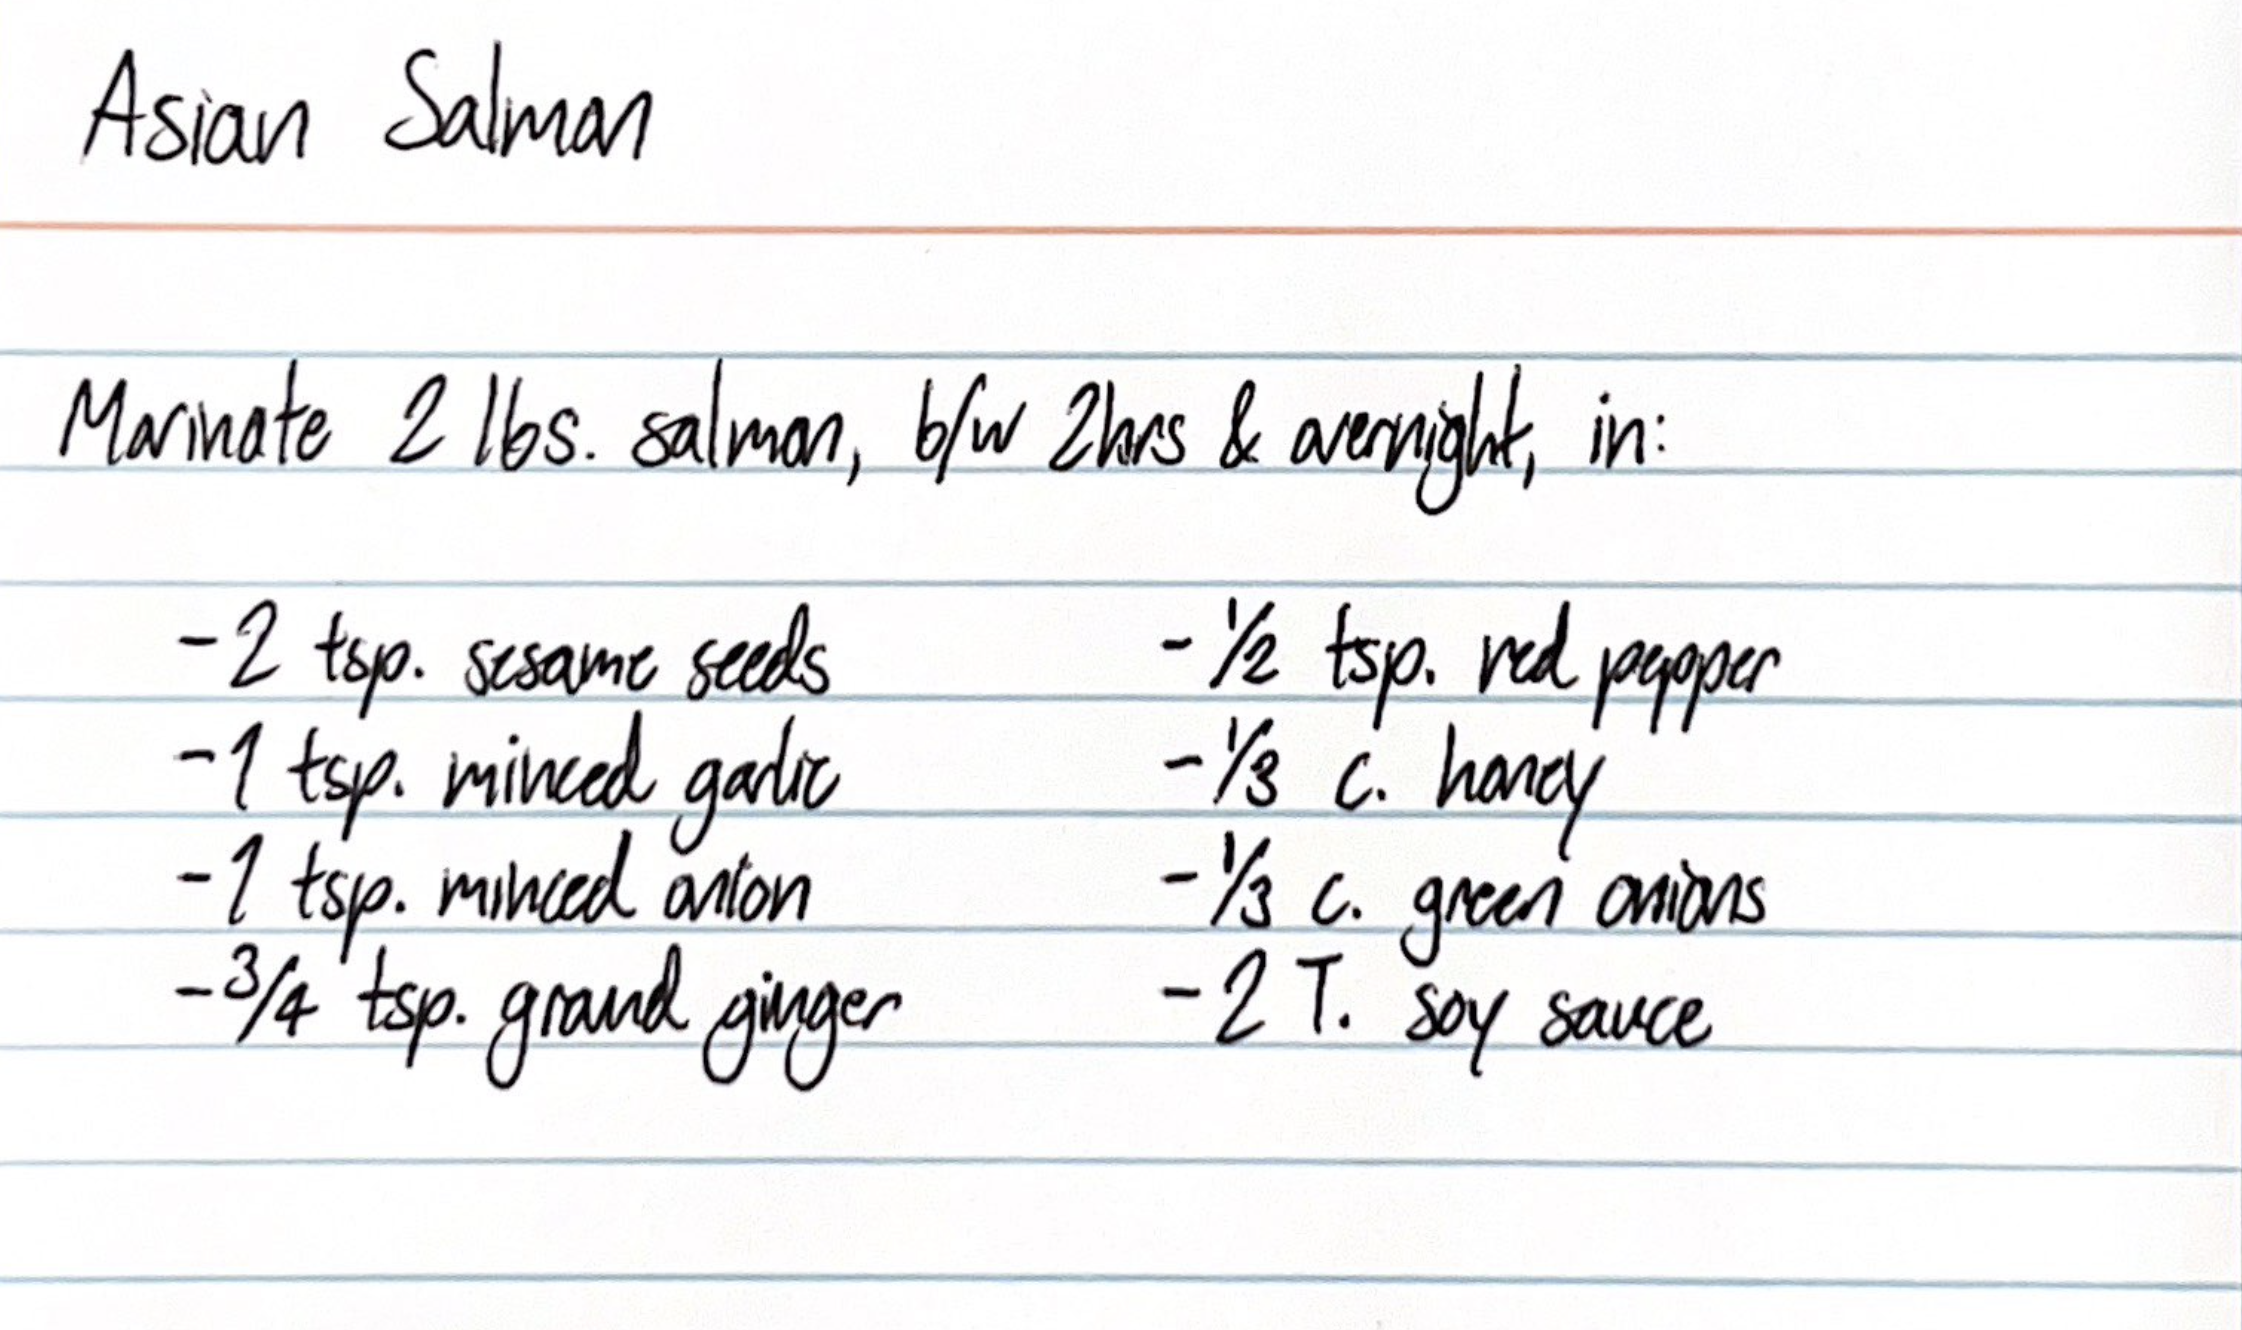 Asian Salmon
Marinate 2 lbs. salmon, b/w 2hrs & overnight, in:
-2 tsp. sesame seeds
-1 tsp. minced garlic
-1 tsp. minced onion
-3/4 tsp. ground ginger
-1/2 tsp. red pepper
-1/3 c. honey
-1/3 c. green onions
-2 T. soy sauce